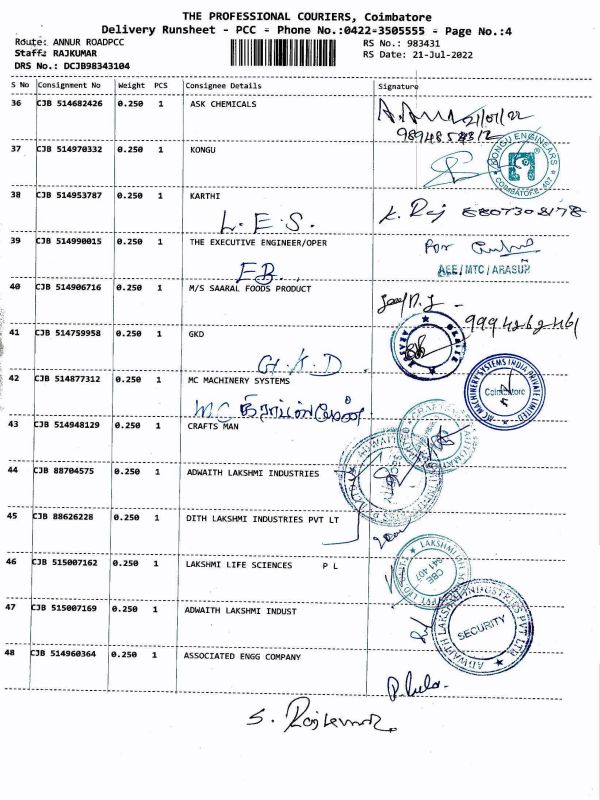 THE PROFESSIONAL COURIERS, Coimbatore
Delivery Runsheet - PCC - Phone No.:0422-3505555 - Page No.:4
Route: ANNUR ROADPCC RS No.: 983431
Staff: RAJKUMAR RS Date: 21-Jul-2022
DRS No.: DCJB98343104
S No Consignment No Weight PCS Consignee Details Signature
36 CJB 514682426 0.250 1 ASK CHEMICALS
37 CJB 514970332 0.250 1 KONGU
KONGU ENGINEARS
COIMBATORE-407
38 CJB 514953787 0.250 1 KARTHI
L.E.S. K. Raj
39 CJB 514990015 0.250 1 THE EXECUTIVE ENGINEER/OPER For
EB. AEE/MTC/ARASUR
40 CJB 514906716 0.250 1 M/S SAARAL FOODS PRODUCT
41 CJB 514759958 0.250 1 GKD
G.K.D.
42 CJB 514877312 0.250 1 MC MACHINERY SYSTEMS
MC MACHINERY SYSTEMS INDIA PRIVATE LIMITED
Coimbatore
MC
43 CJB 514948129 0.250 1 CRAFTS MAN
44 CJB 88704575 0.250 1 ADWAITH LAKSHMI INDUSTRIES
45 CJB 88626228 0.250 1 DITH LAKSHMI INDUSTRIES PVT LT
46 CJB 515007162 0.250 1 LAKSHMI LIFE SCIENCES P L
CBE
641 407
47 CJB 515007169 0.250 1 ADWAITH LAKSHMI INDUST
ADWAITH LAKSHMI INDUSTRIES PVT LTD
SECURITY
48 CJB 514960364 0.250 1 ASSOCIATED ENGG COMPANY
S. Rajkumar.